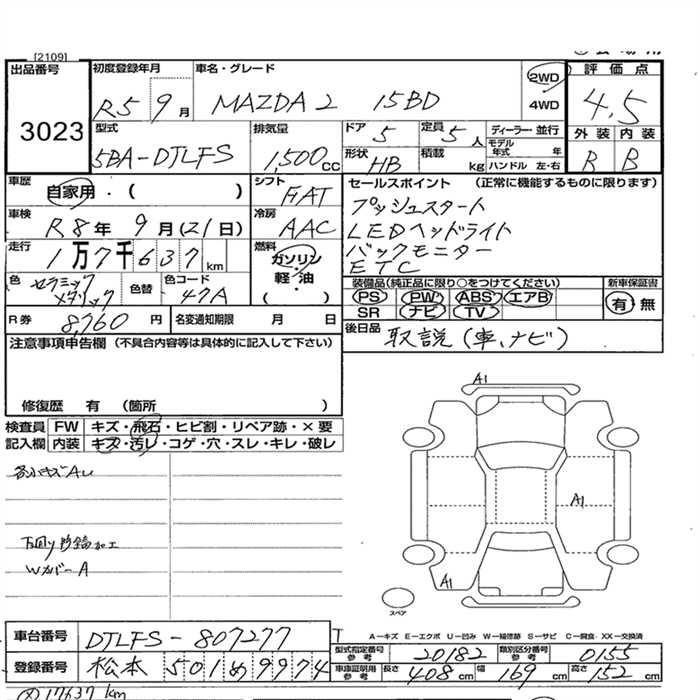 [2109]
出品番号
3023
初度登録年月
R5 9月
車名・グレード
MAZDA2 15BD
2WD
4WD
評価点
4.5
外装 内装
R B
型式
5BA-DJLFS
排気量
1,500cc
ドア 5
定員 5人
ディーラー・並行
モデル年式 年
形状 HB
積載 kg
ハンドル 左・右
車歴
自家用・( )
シフト
FAT
車検
R8年9月(21日)
冷房
AAC
走行
1万7千637km
燃料
ガソリン・軽・油
・( )
色
セラミックメタリック
色替
色コード
47A
R券 8,760円
名変通知期限 月 日
セールスポイント (正常に機能するものに限ります)
プッシュスタート
LEDヘッドライト
バックモニター
ETC
装備品(純正品に限り○をつけてください)
PS PW ABS エアB
SR ナビ TV
新車保証書
有・無
後日品 取説(車、ナビ)
注意事項申告欄 (不具合内容等は具体的に記入して下さい)
修復歴 有 (箇所 )
検査員記入欄
FW キズ・飛石・ヒビ割・リペア跡・×要
内装 キズ・汚レ・コゲ・穴・スレ・キレ・破レ
各小キズAレ
下回り防錆加工
WカバーA
A1
A1
A1
スペア
A－キズ E－エクボ U－凹み W－補修跡 S－サビ C－腐食 XX－交換済
車台番号 DJLFS-807277
登録番号 松本501め9974
型式指定番号参考 20182
類別区分番号参考 0155
車庫証明用参考 長さ 408cm 幅 169cm 高さ 152cm
17637km